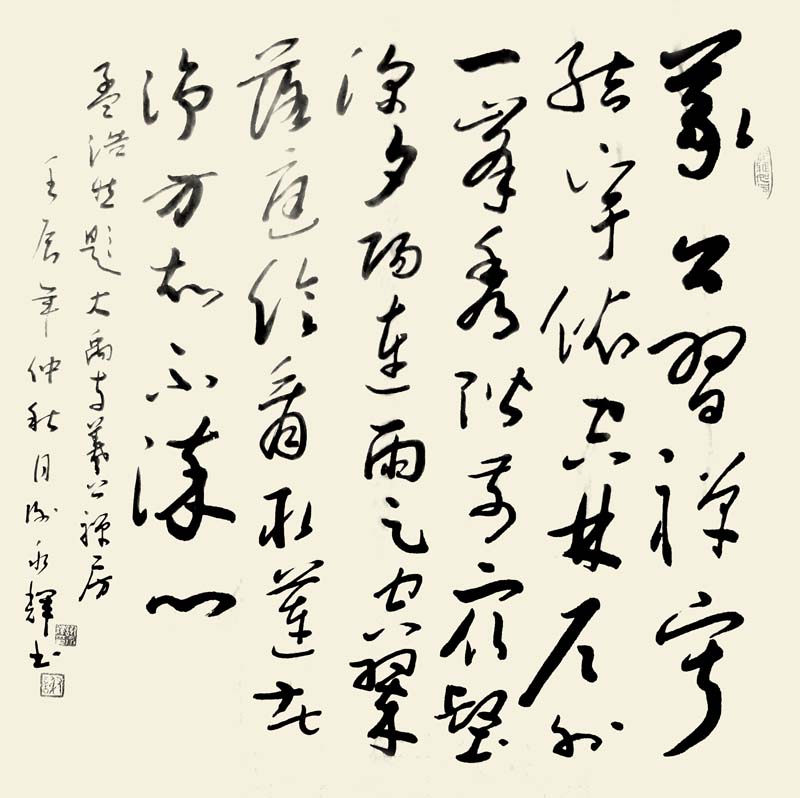 義公習禪寂
結宇依空林戶外
一峯秀階前衆壑
深夕陽連雨足空翠
落庭陰看取蓮花
淨方知不染心
孟浩然題大禹寺義公禪房
壬辰年仲秋月謝永輝書